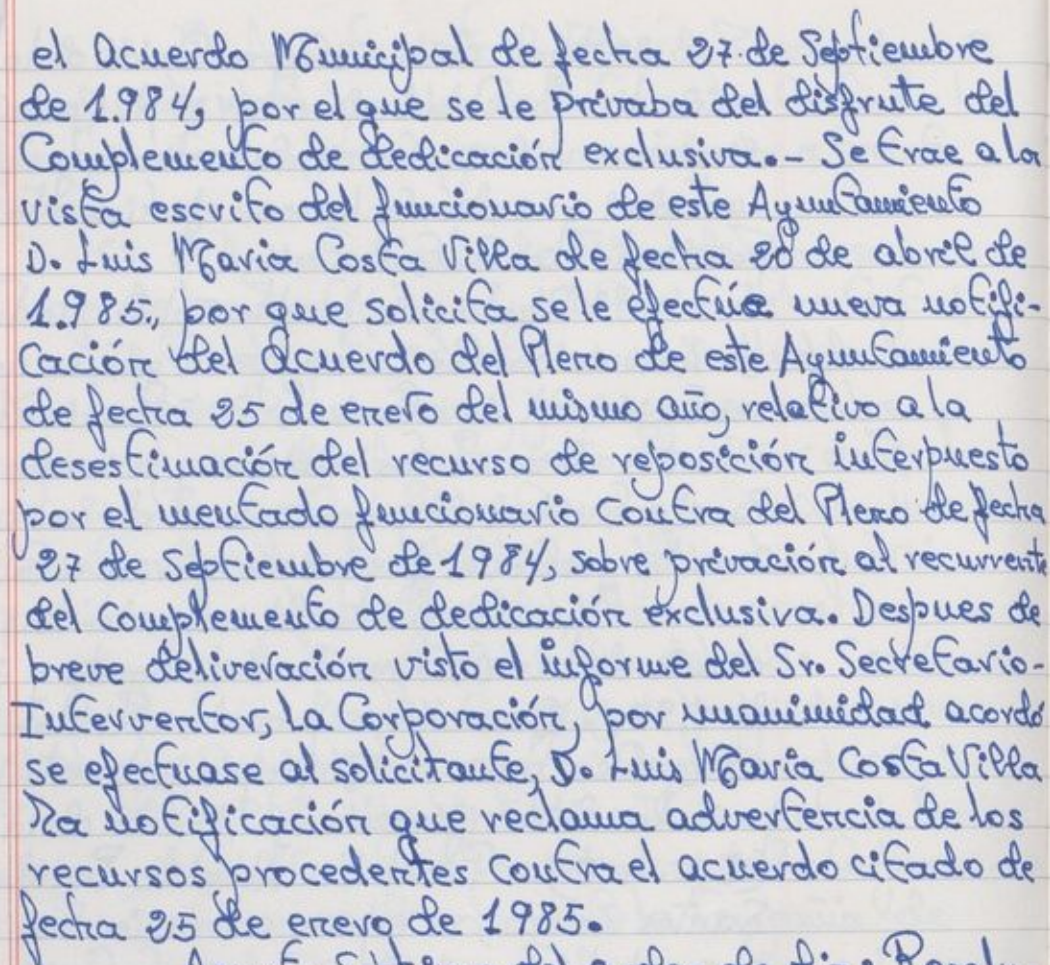 el acuerdo Municipal de fecha 27 de Septiembre
de 1.984, por el que se le privaba del disfrute del
Complemento de dedicación exclusiva.- Se trae a la
vista escrito del funcionario de este Ayuntamiento
D. Luis Maria Costa Villa de fecha 20 de abril de
1.985., por que solicita se le efectúe nueva notifi-
cación del acuerdo del Pleno de este Ayuntamiento
de fecha 25 de enero del mismo año, relativo a la
desestimación del recurso de reposición interpuesto
por el mentado funcionario contra del Pleno de fecha
27 de Septiembre de 1984, sobre privación al recurrente
del Complemento de dedicación exclusiva. Despues de
breve deliveración visto el informe del Sr. Secretario-
Interventor, la Corporación, por unanimidad acordó
se efectuase al solicitante, D. Luis Maria Costa Villa
la notificación que reclama advertencia de los
recursos procedentes contra el acuerdo citado de
fecha 25 de enero de 1985.